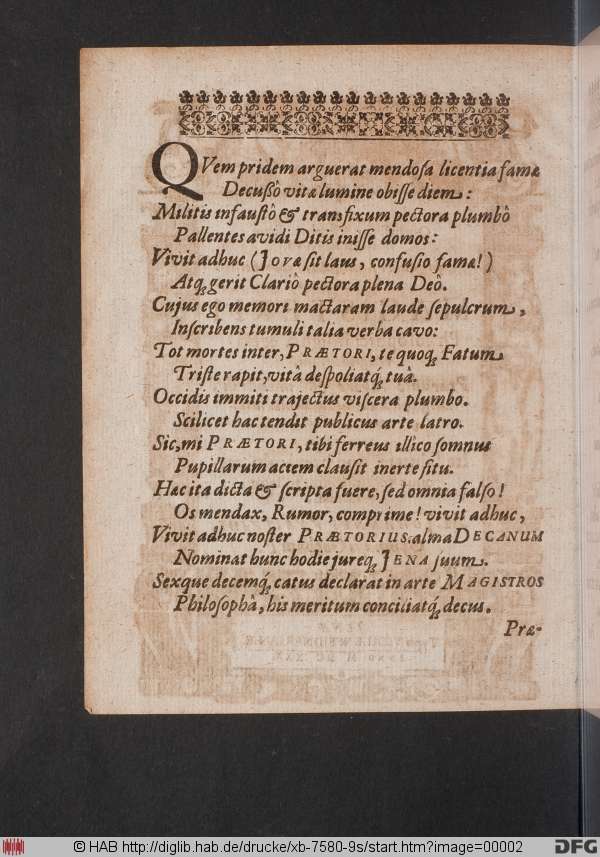 QVem pridem arguerat mendosa licentia famæ
Decussô vitæ lumine obisse diem:
Militis infaustô & transfixum pectora plumbô
Pallentes avidi Ditis inisse domos:
Vivit adhuc (JOVæ sit laus, confusio famæ!)
Atq; gerit Clariô pectora plena Deô.
Cujus ego memori mactaram laude sepulcrum,
Inscribens tumuli talia verba cavo:
Tot mortes inter, PRÆTORI, te quoq; Fatum
Triste rapit, vitâ despoliatq́; tuâ.
Occidis immiti trajectus viscera plumbo.
Scilicet hac tendit publicus arte latro.
Sic, mi PRÆTORI, tibi ferreus illico somnus
Pupillarum aciem clausit inerte situ.
Hæc ita dicta & scripta fuere, sed omnia falso!
Os mendax, Rumor, comprime! vivit adhuc,
Vivit adhuc noster PRÆTORIUS, alma DECANUM
Nominat hunc hodie jureq; JENA suum.
Sexque decemq́; catus declarat in arte MAGISTROS
Philosophâ, his meritum conciliatq́; decus.
Præ-
© HAB http://diglib.hab.de/drucke/xb-7580-9s/start.htm?image=00002
DFG